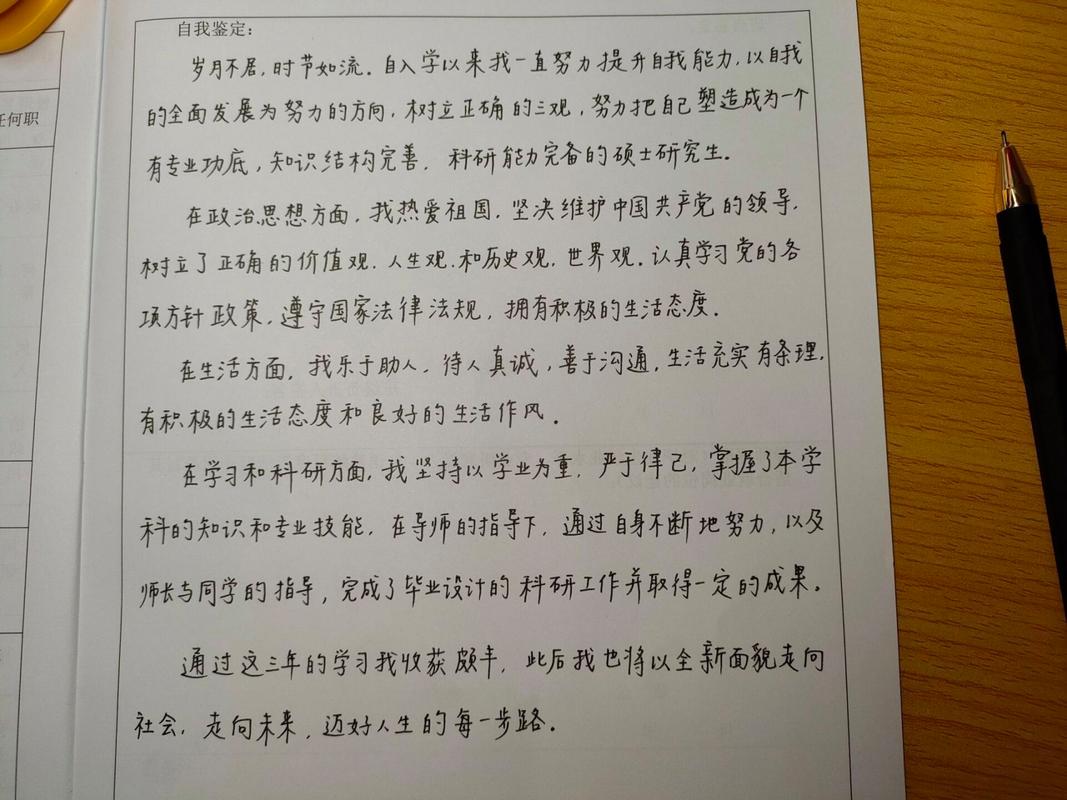 任何职
自我鉴定：
岁月不居，时节如流。自入学以来我一直努力提升自我能力，以自我
的全面发展为努力的方向，树立正确的三观，努力把自己塑造成为一个
有专业功底，知识结构完善，科研能力完备的硕士研究生。
在政治思想方面，我热爱祖国，坚决维护中国共产党的领导，
树立了正确的价值观、人生观、和历史观、世界观。认真学习党的各
项方针政策，遵守国家法律法规，拥有积极的生活态度。
在生活方面，我乐于助人，待人真诚，善于沟通，生活充实有条理，
有积极的生活态度和良好的生活作风。
在学习和科研方面，我坚持以学业为重，严于律己，掌握了本学
科的知识和专业技能，在导师的指导下，通过自身不断地努力，以及
师长与同学的指导，完成了毕业设计的科研工作并取得一定的成果。
通过这三年的学习我收获颇丰，此后我也将以全新面貌走向
社会，走向未来，迈好人生的每一步路。